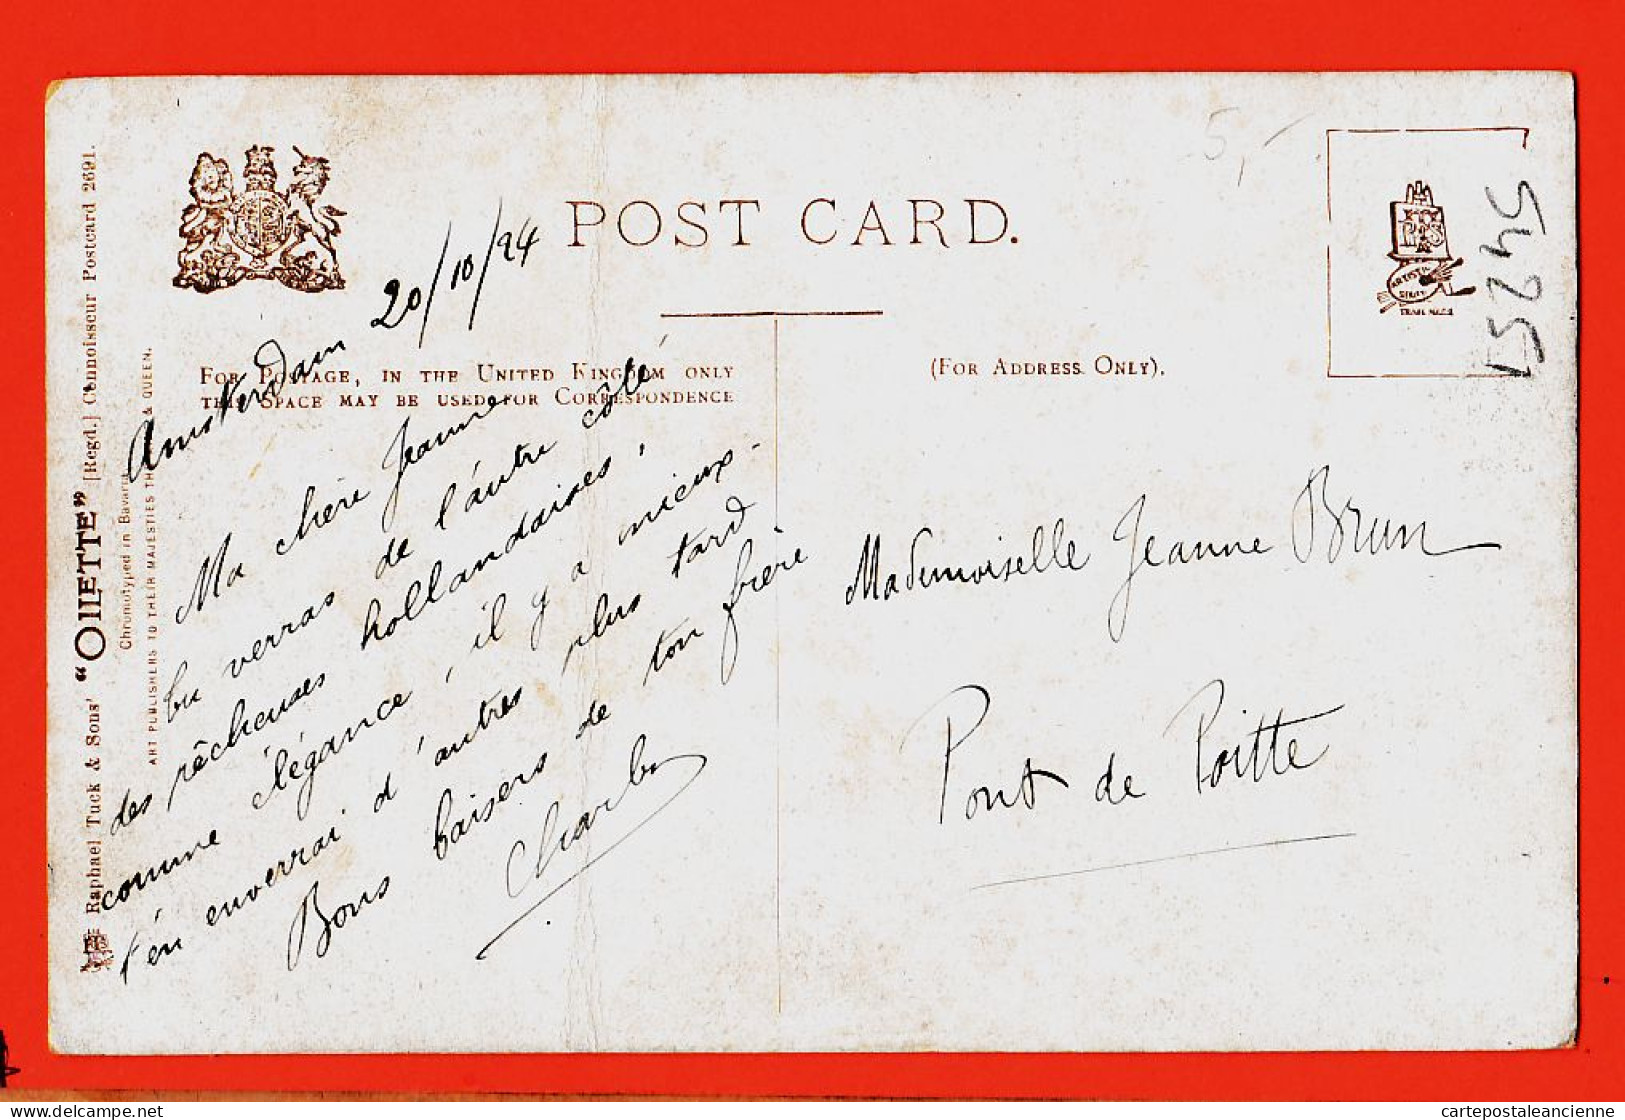 POST CARD.
5,-
54257
FOR POSTAGE, IN THE UNITED KINGDOM ONLY
THIS SPACE MAY BE USED FOR CORRESPONDENCE
(FOR ADDRESS ONLY).
ARTISTIC
TRADE MARK
Raphael Tuck & Sons' "OILETTE" [Regd.] Connoisseur Postcard 2691.
Chromotyped in Bavaria
ART PUBLISHERS TO THEIR MAJESTIES THE KING & QUEEN.
Amsterdam 20/10/24
Ma chère Jeanne
tu verras de l'autre côté
des pêcheuses hollandaises,
comme élégance, il y a mieux-
t'en enverrai d'autres plus tard
Bons baisers de ton frère
Charles
Mademoiselle Jeanne Brun
Pont de Poitte
www.delcampe.net
cartepostaleancienne